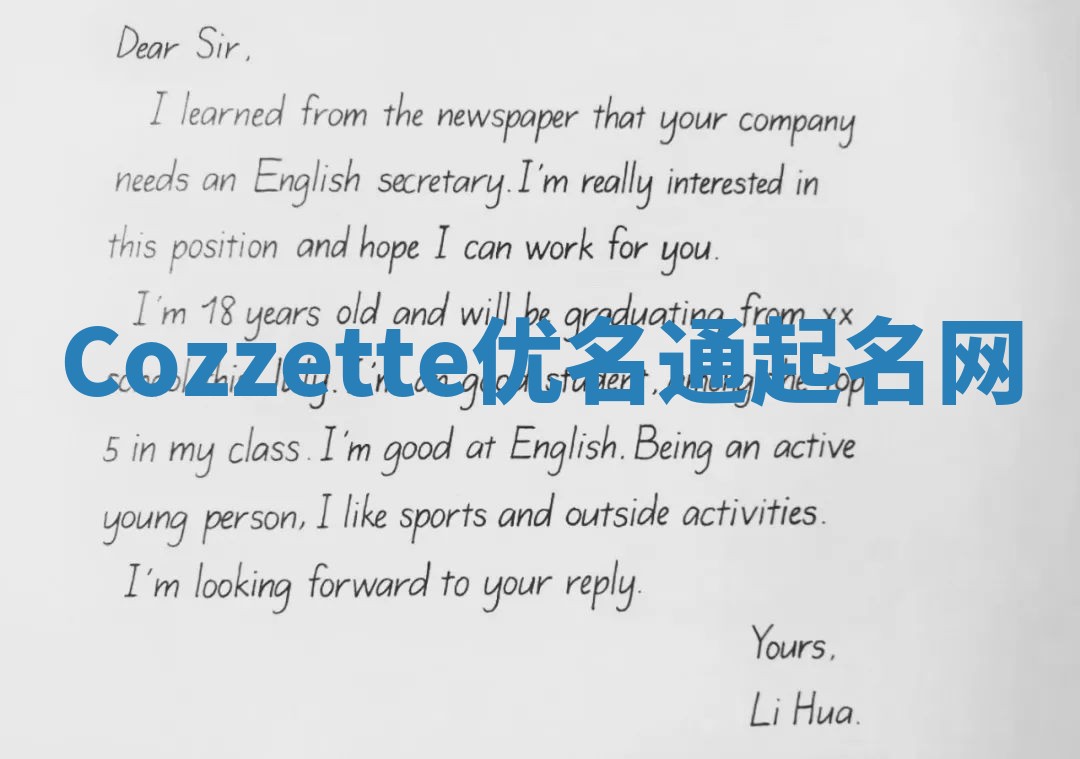 Dear Sir,
I learned from the newspaper that your company
needs an English secretary. I'm really interested in
this position and hope I can work for you.
I'm 18 years old and will be graduating from xx
Cozzette优名通起名网
school this July. I'm an good student, among the top
5 in my class. I'm good at English. Being an active
young person, I like sports and outside activities.
I'm looking forward to your reply.
Yours,
Li Hua.